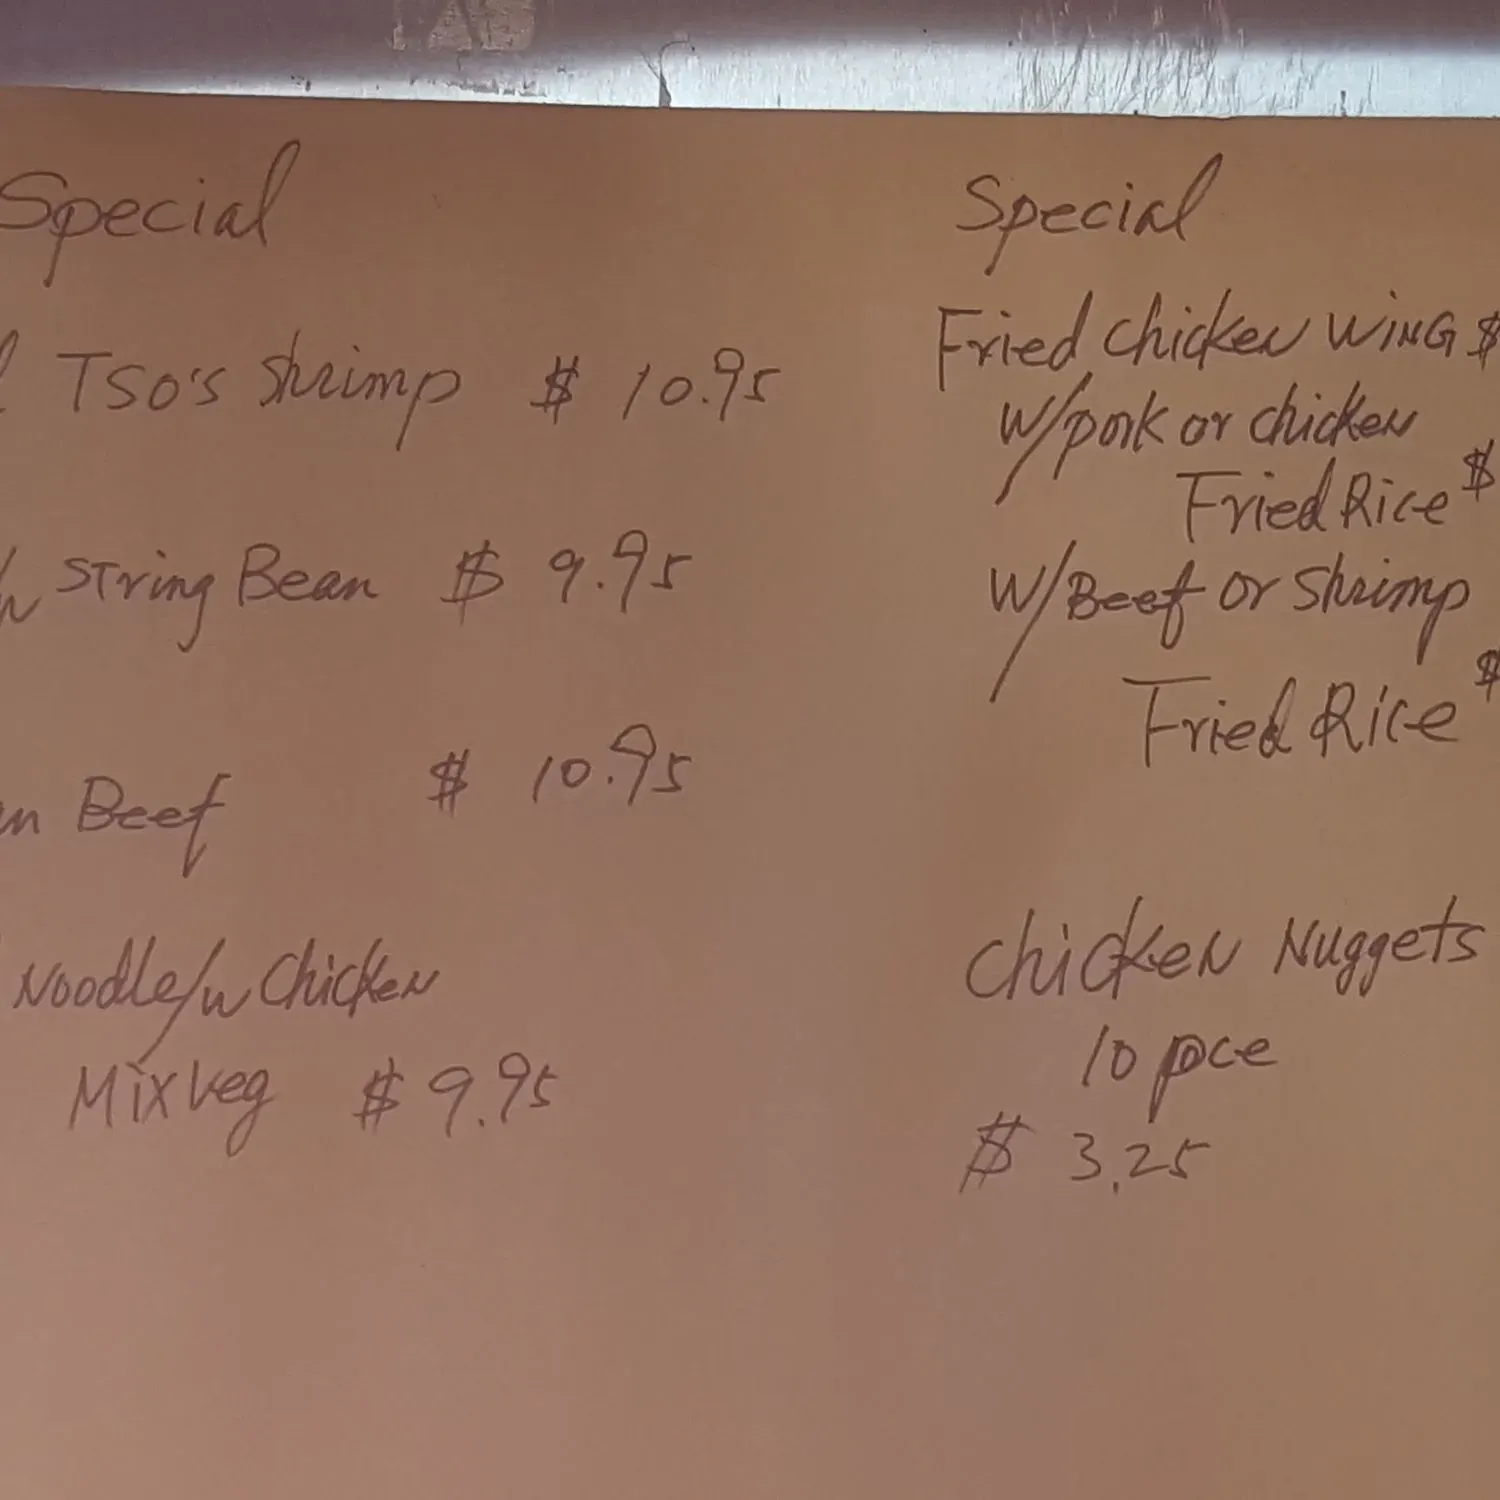 Special
TSO's Shrimp $ 10.95
String Bean $ 9.95
Beef $ 10.95
Noodle/w Chicken
Mix Veg $ 9.95
Special
Fried Chicken WING $
W/pork or chicken
Fried Rice $
W/Beef or Shrimp
Fried Rice $
Chicken Nuggets
10 pce
$ 3.25